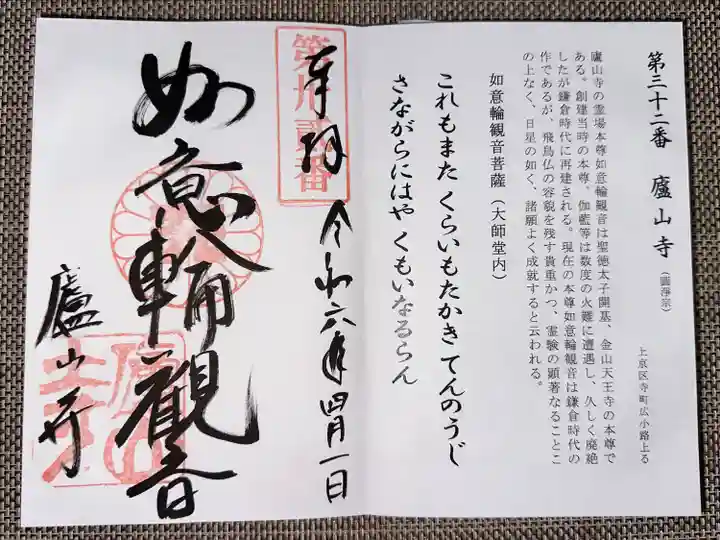 第三十二番　廬山寺（圓淨宗）
上京区寺町広小路上る
廬山寺の霊場本尊如意輪観音は聖徳太子開基、金山天王寺の本尊で
ある。創建当時の本尊、伽藍等は数度の火難に遭遇し、久しく廃絶
したが鎌倉時代に再建される。現在の本尊如意輪観音は鎌倉時代の
作であるが、飛鳥仏の容貌を残す貴重かつ、霊験の顕著なることこ
の上なく、日星の如く、諸願よく成就すると云われる。
如意輪観音菩薩（大師堂内）
これもまた くらいもたかき てんのうじ
さながらにはや くもいなるらん
第卅二番
奉拝
令和六年四月一日
如意輪観音
廬山寺